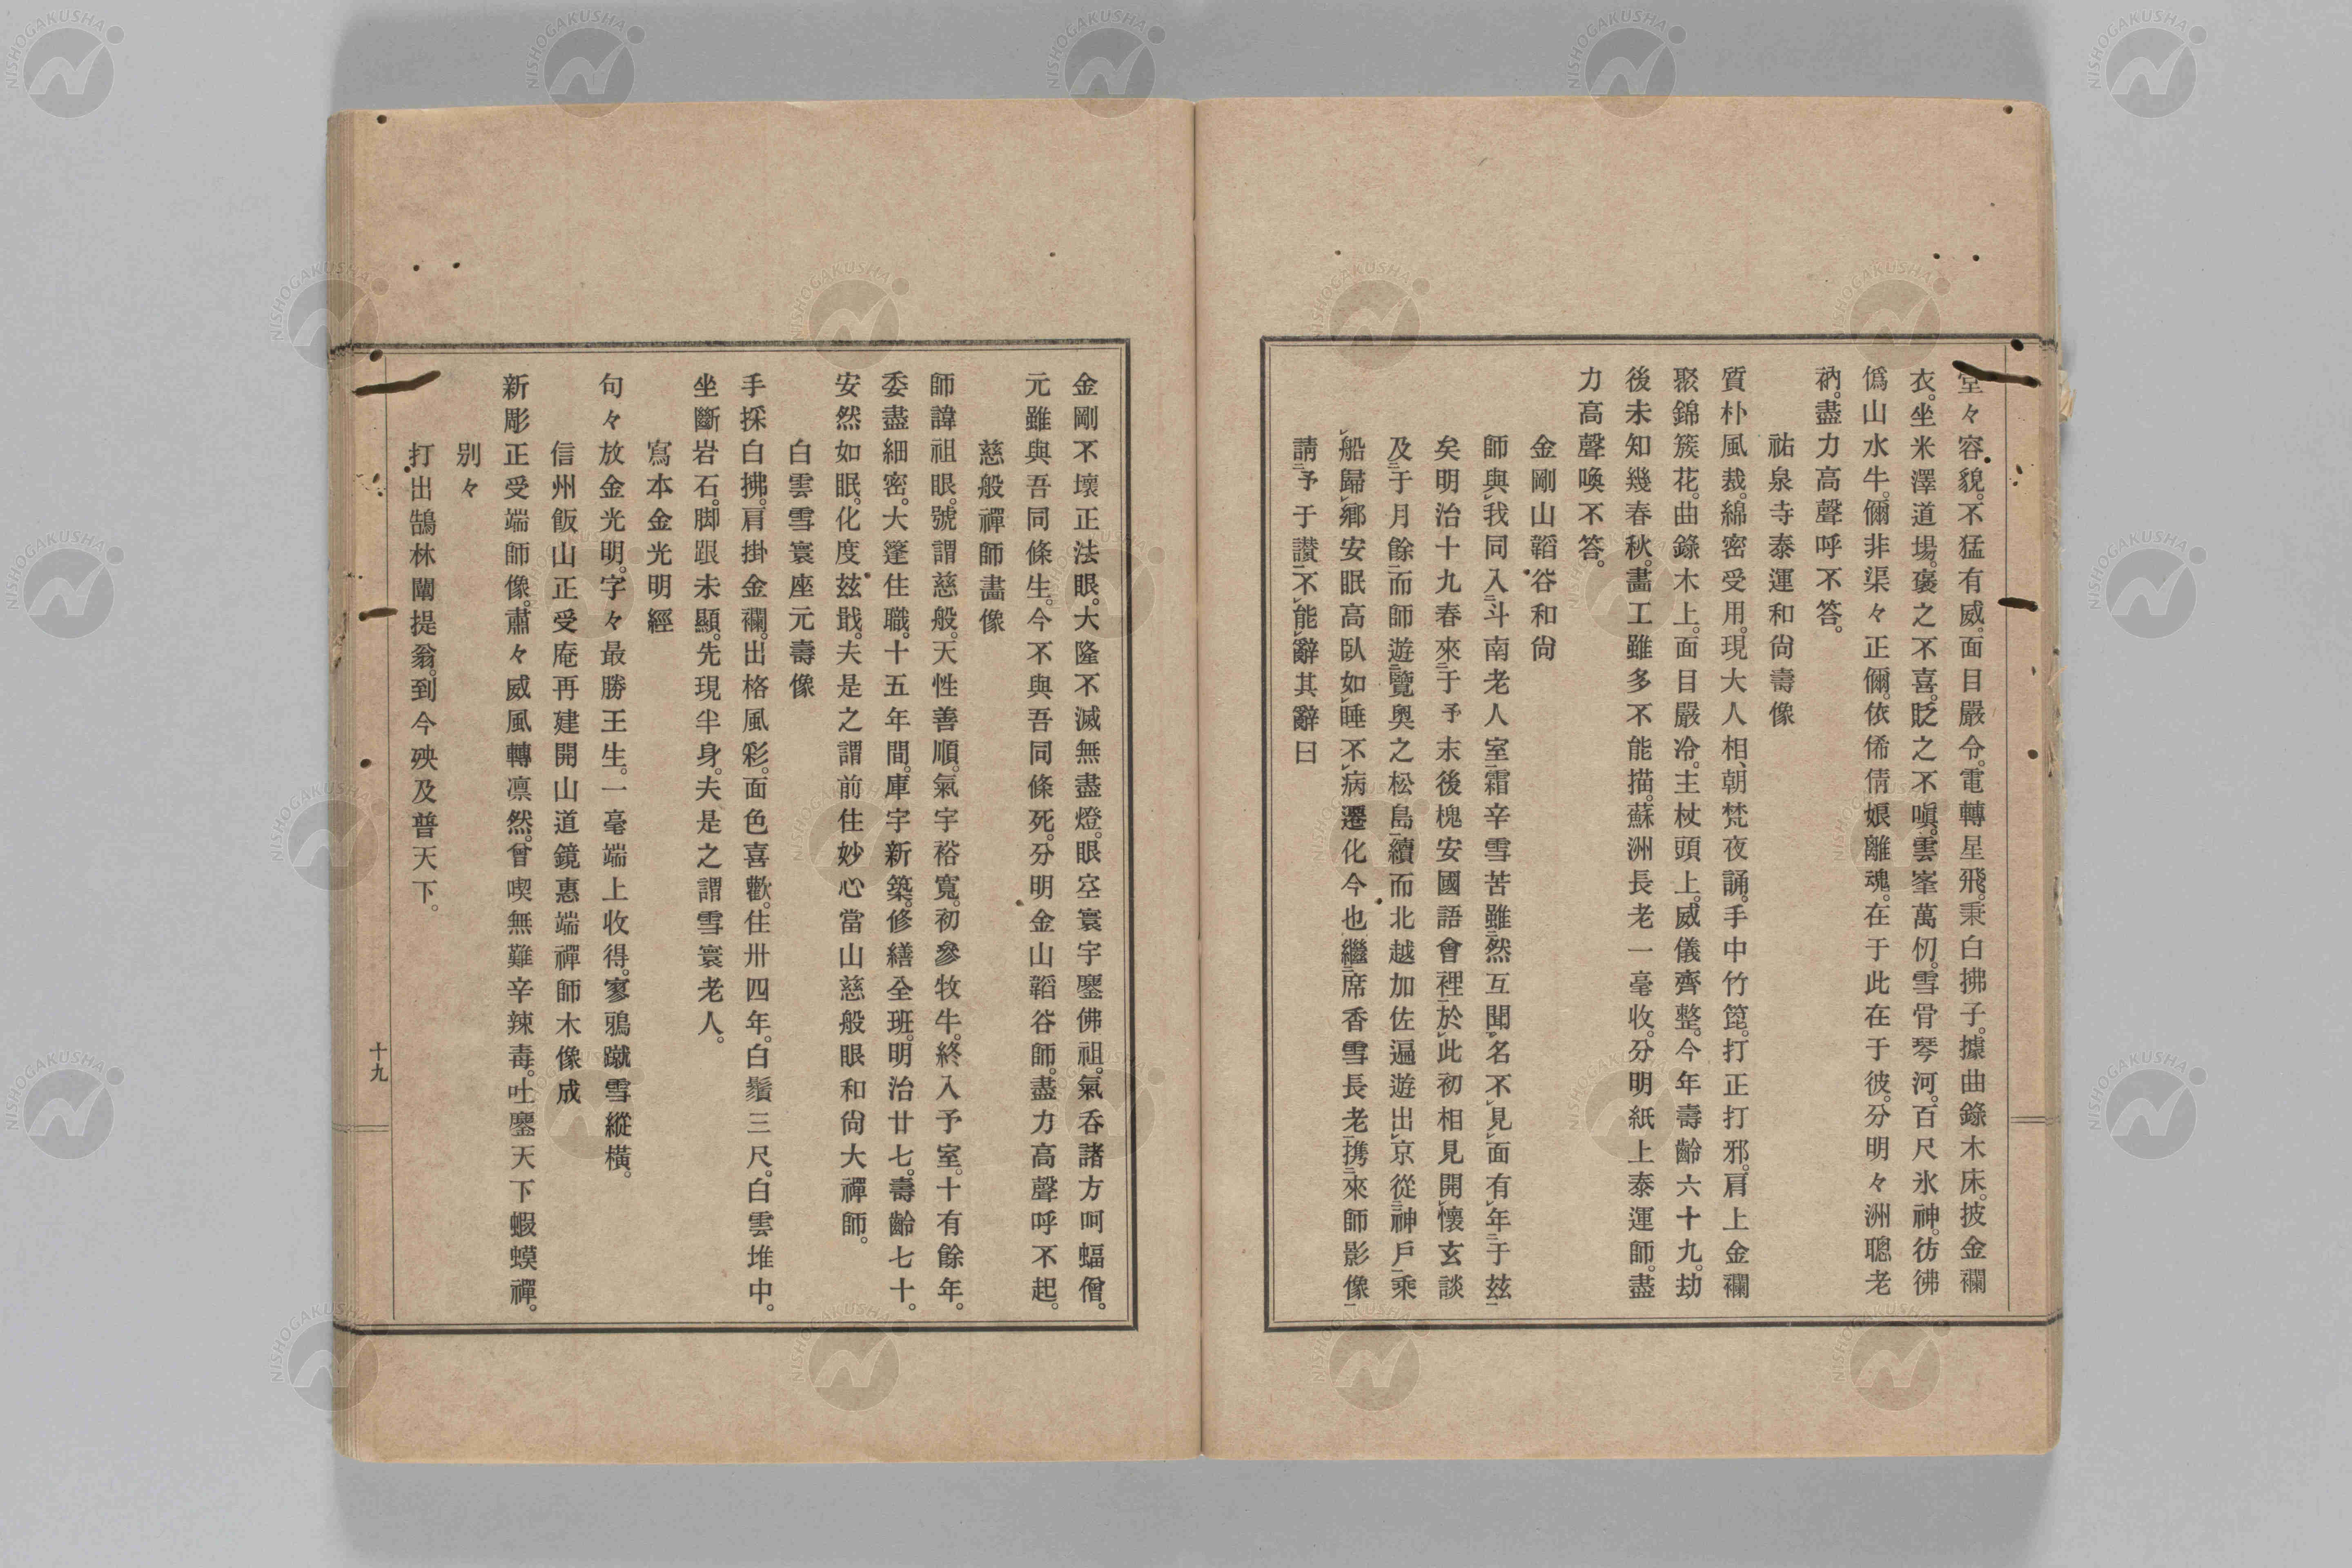 堂々容貌。不猛有威。面目嚴令。電轉星飛。秉白拂子。據曲錄木床。披金襴
衣。坐米澤道場。褒之不喜。貶之不嗔。雲峯萬仞。雪骨琴河。百尺氷神。彷彿
僞山水牛。儞非渠々正儞。依俙倩娘離魂。在于此在于彼。分明々洲聰老
衲。盡力高聲呼不答。
祐泉寺泰運和尙壽像
質朴風裁。綿密受用。現大人相、朝梵夜誦。手中竹箆。打正打邪。肩上金襴
聚錦簇花。曲錄木上。面目嚴冷。主杖頭上。威儀齊整。今年壽齡六十九。劫
後未知幾春秋。畫工雖多不能描。蘇洲長老一毫收。分明紙上泰運師。盡
力高聲喚不答。
金剛山韜谷和尙
師與レ我同入二斗南老人室一霜辛雪苦雖二然互聞一レ名不レ見レ面有レ年二于玆一
矣明治十九春來二于予末後槐安國語會裡一於レ此初相見開レ懷玄談
及二于月餘一而師遊二覽奧之松島一續而北越加佐遍遊出レ京從二神戶一乘
レ船歸レ鄉安眠高臥如レ睡不レ病遷化今也繼二席香雪長老一携二來師影像一
請二予于讃一不レ能レ辭其辭曰
金剛不壞正法眼。大隆不滅無盡燈。眼空寰宇鏖佛祖。氣呑諸方呵蝠僧。
元雖與吾同條生。今不與吾同條死。分明金山韜谷師。盡力高聲呼不起。
慈般禪師畫像
師諱祖眼。號謂慈般。天性善順。氣宇裕寬。初參牧牛。終入予室。十有餘年。
委盡細密。大篷住職。十五年間。庫宇新築。修繕全班。明治廿七。壽齡七十。
安然如眠。化度玆戢。夫是之謂前住妙心當山慈般眼和尙大禪師。
白雲雪寰座元壽像
手採白拂。肩掛金襴。出格風彩。面色喜歡。住卅四年。白鬚三尺。白雲堆中。
坐斷岩石。脚跟未顯。先現半身。夫是之謂雪寰老人。
寫本金光明經
句々放金光明。字々最勝王生。一毫端上收得。寥鴉蹴雪縱橫。
信州飯山正受庵再建開山道鏡惠端禪師木像成
新彫正受端師像。肅々威風轉凛然。曾喫無難辛辣毒。吐鏖天下蝦蟆禪。
別々
打出鵠林闡提翁。到今殃及普天下。
十九
NISHOGAKUSHA